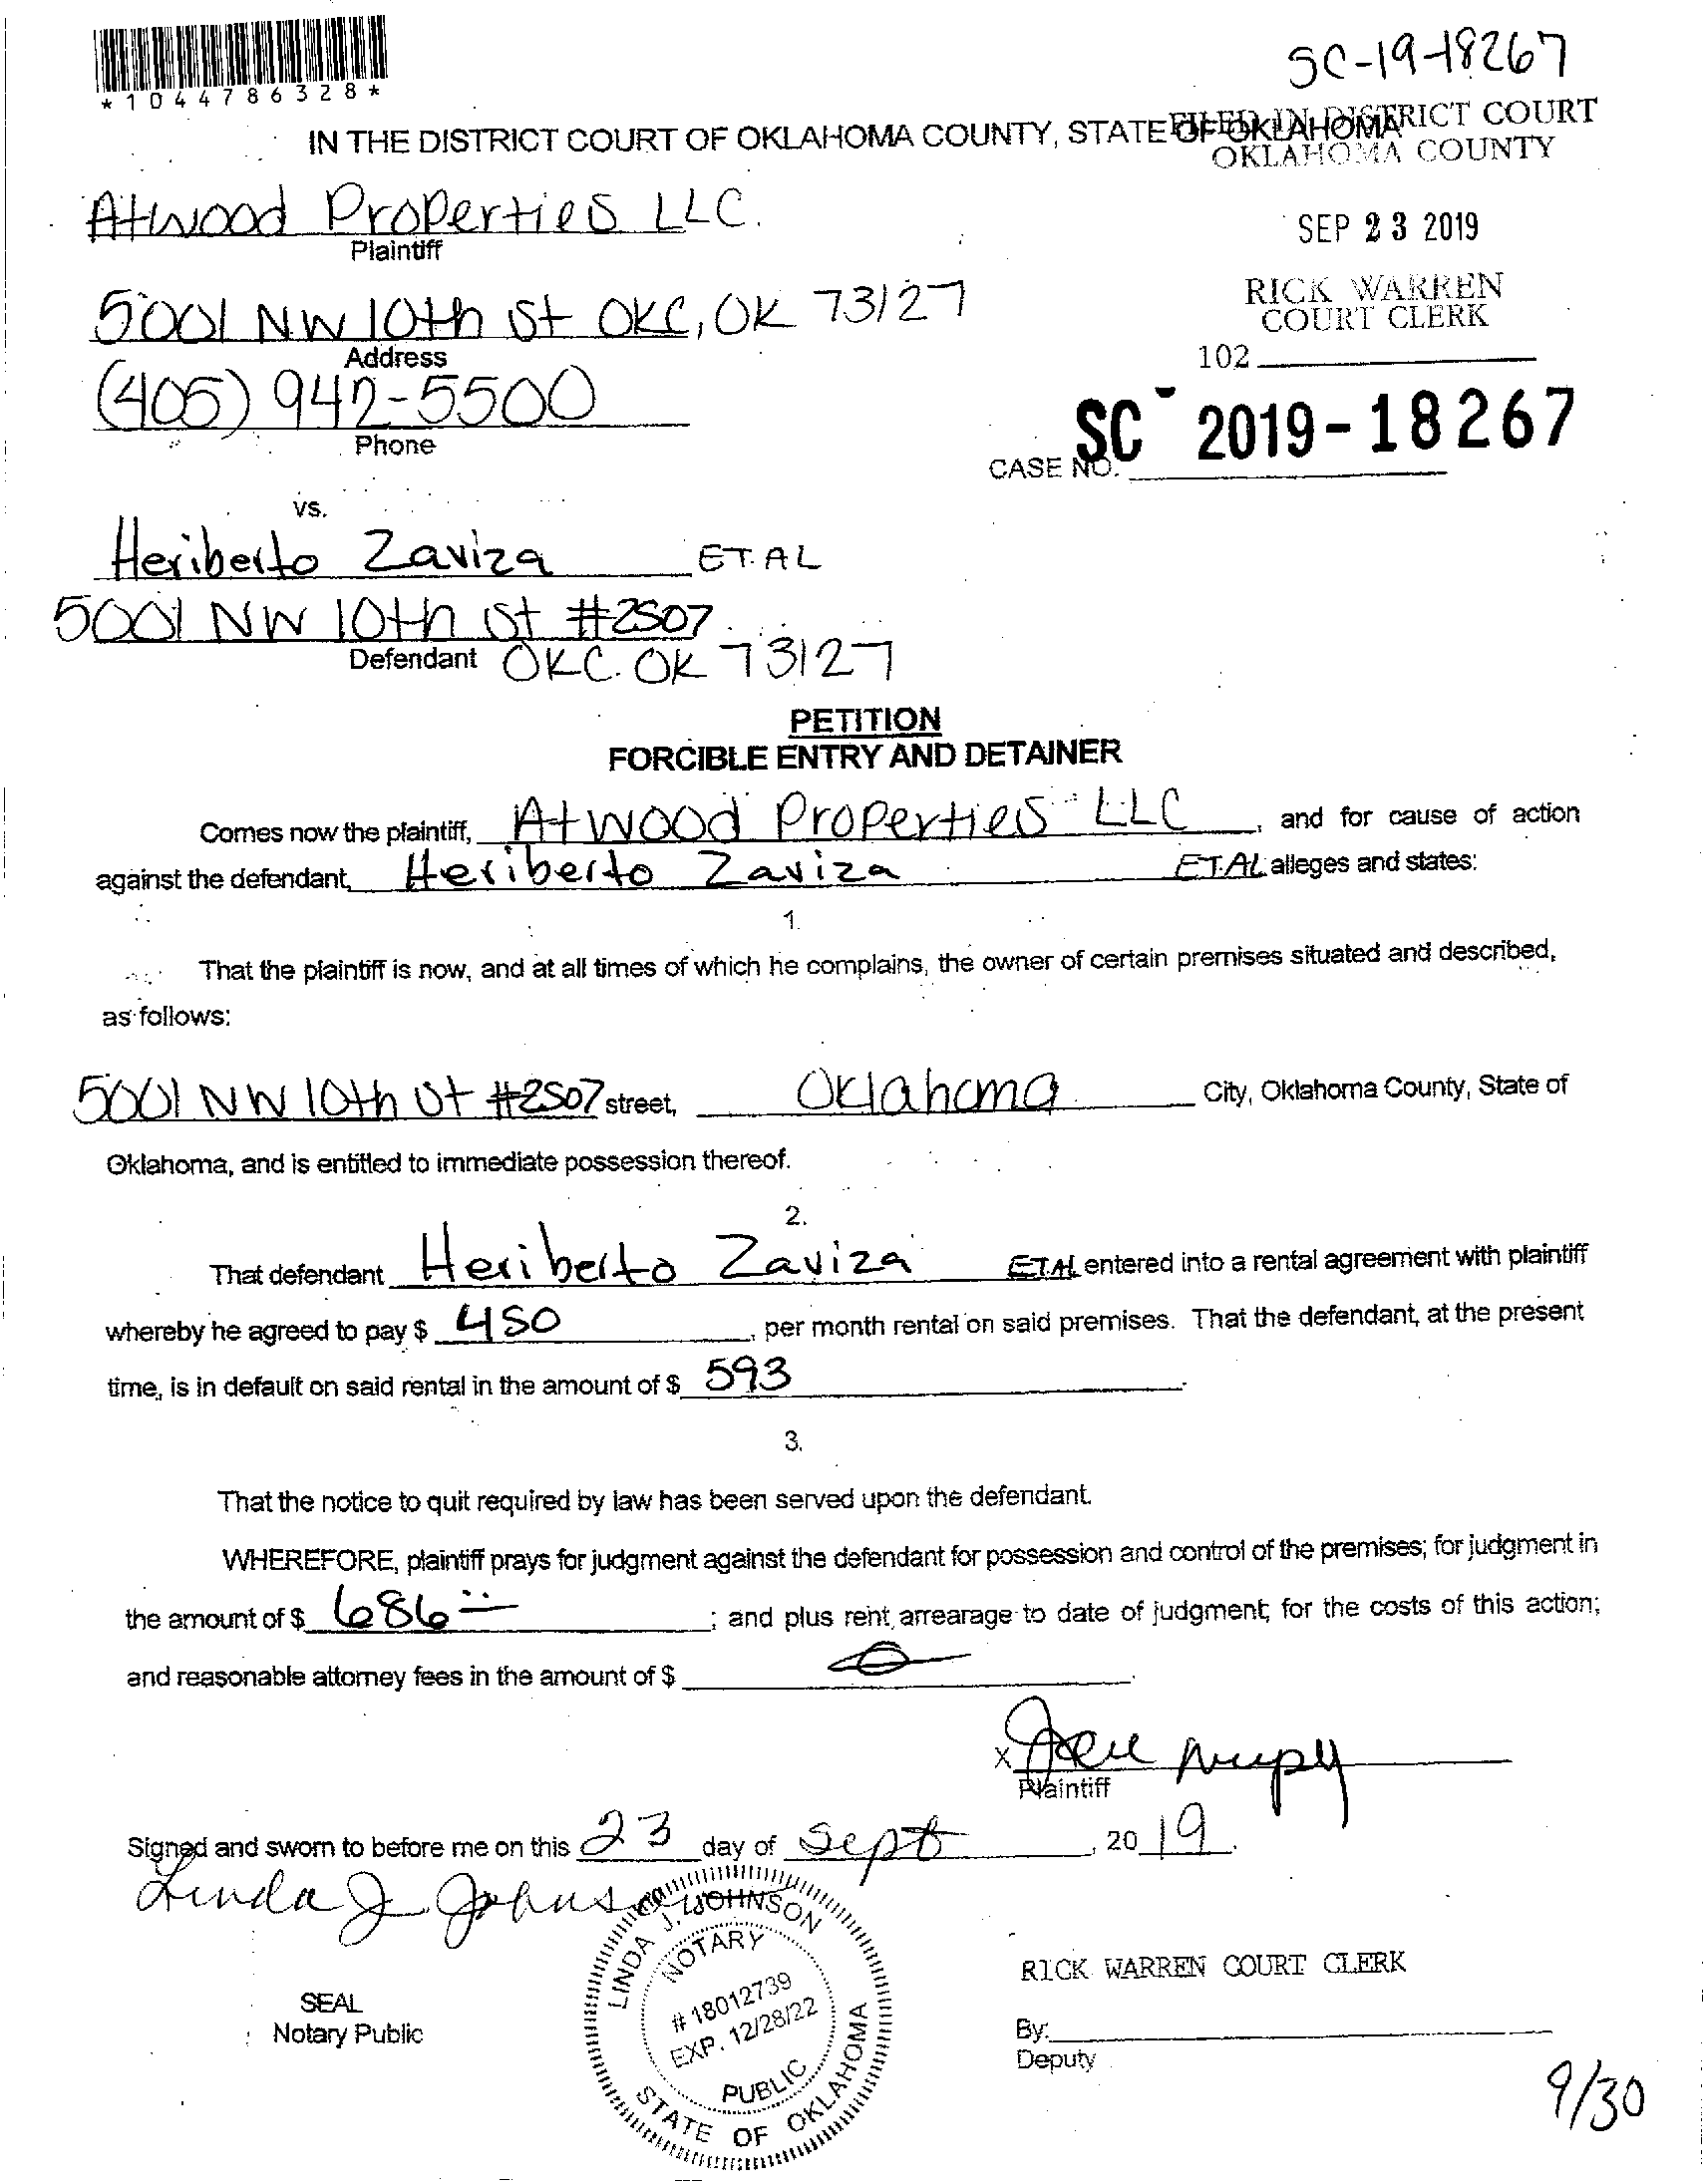 SC-19-18267
*1044786328*
IN THE DISTRICT COURT OF OKLAHOMA COUNTY, STATE OF OKLAHOMA
FILED IN DISTRICT COURT
OKLAHOMA COUNTY
Atwood Properties LLC.
Plaintiff
SEP 23 2019
5001 NW 10th St OKC, OK 73127
Address
RICK WARREN
COURT CLERK
102
(405) 942-5500
Phone
SC 2019-18267
CASE NO.
vs.
Heriberto Zaviza ET.AL
5001 NW 10th St #2507
Defendant OKC. OK 73127
PETITION
FORCIBLE ENTRY AND DETAINER
Comes now the plaintiff, Atwood Properties LLC, and for cause of action
against the defendant, Heriberto Zaviza ET.AL alleges and states:
1.
That the plaintiff is now, and at all times of which he complains, the owner of certain premises situated and described,
as follows:
5001 NW 10th St #2507 street, Oklahoma City, Oklahoma County, State of
Oklahoma, and is entitled to immediate possession thereof.
2.
That defendant Heriberto Zaviza ET.AL entered into a rental agreement with plaintiff
whereby he agreed to pay $ 450, per month rental on said premises. That the defendant, at the present
time, is in default on said rental in the amount of $ 593.
3.
That the notice to quit required by law has been served upon the defendant.
WHEREFORE, plaintiff prays for judgment against the defendant for possession and control of the premises; for judgment in
the amount of $ 686; and plus rent arrearage to date of judgment; for the costs of this action;
and reasonable attorney fees in the amount of $ 0.
X
Plaintiff
Signed and sworn to before me on this 23 day of Sept, 2019.
Linda J Johnson
LINDA J. JOHNSON
NOTARY
# 18012739
EXP. 12/28/22
PUBLIC
STATE OF OKLAHOMA
SEAL
Notary Public
RICK WARREN COURT CLERK
By:
Deputy
9/30